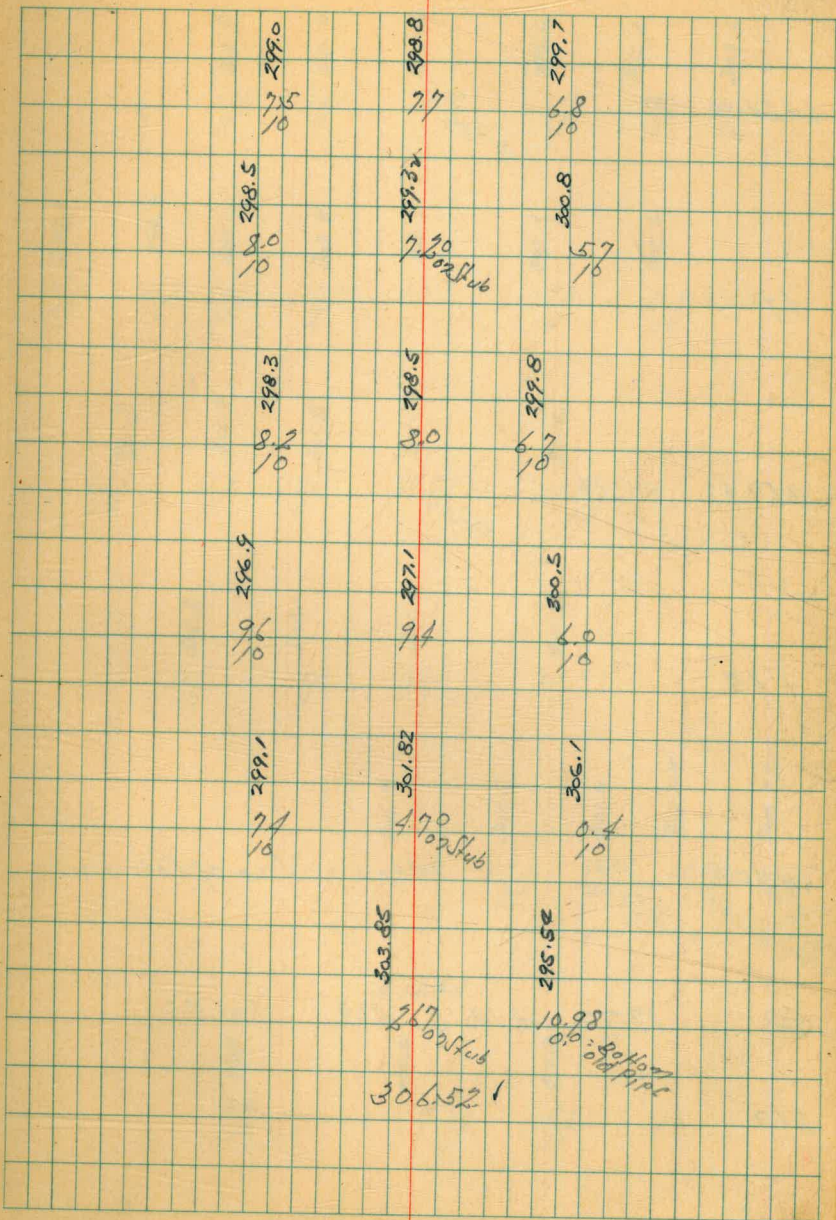 299.0 298.8 299.7
7.5 7.7 6.8
10 10
298.5 299.32 300.8
8.0 7.20 5.7
10 on Stub 10
298.3 298.5 299.8
8.2 8.0 6.7
10 10
296.9 297.1 300.5
9.6 9.4 6.0
10 10
299.1 301.82 306.1
7.4 4.70 0.4
10 on Stub 10
303.85 295.54
2.67 10.98
on Stub 0.0 = Bottom
old pipe
306.52